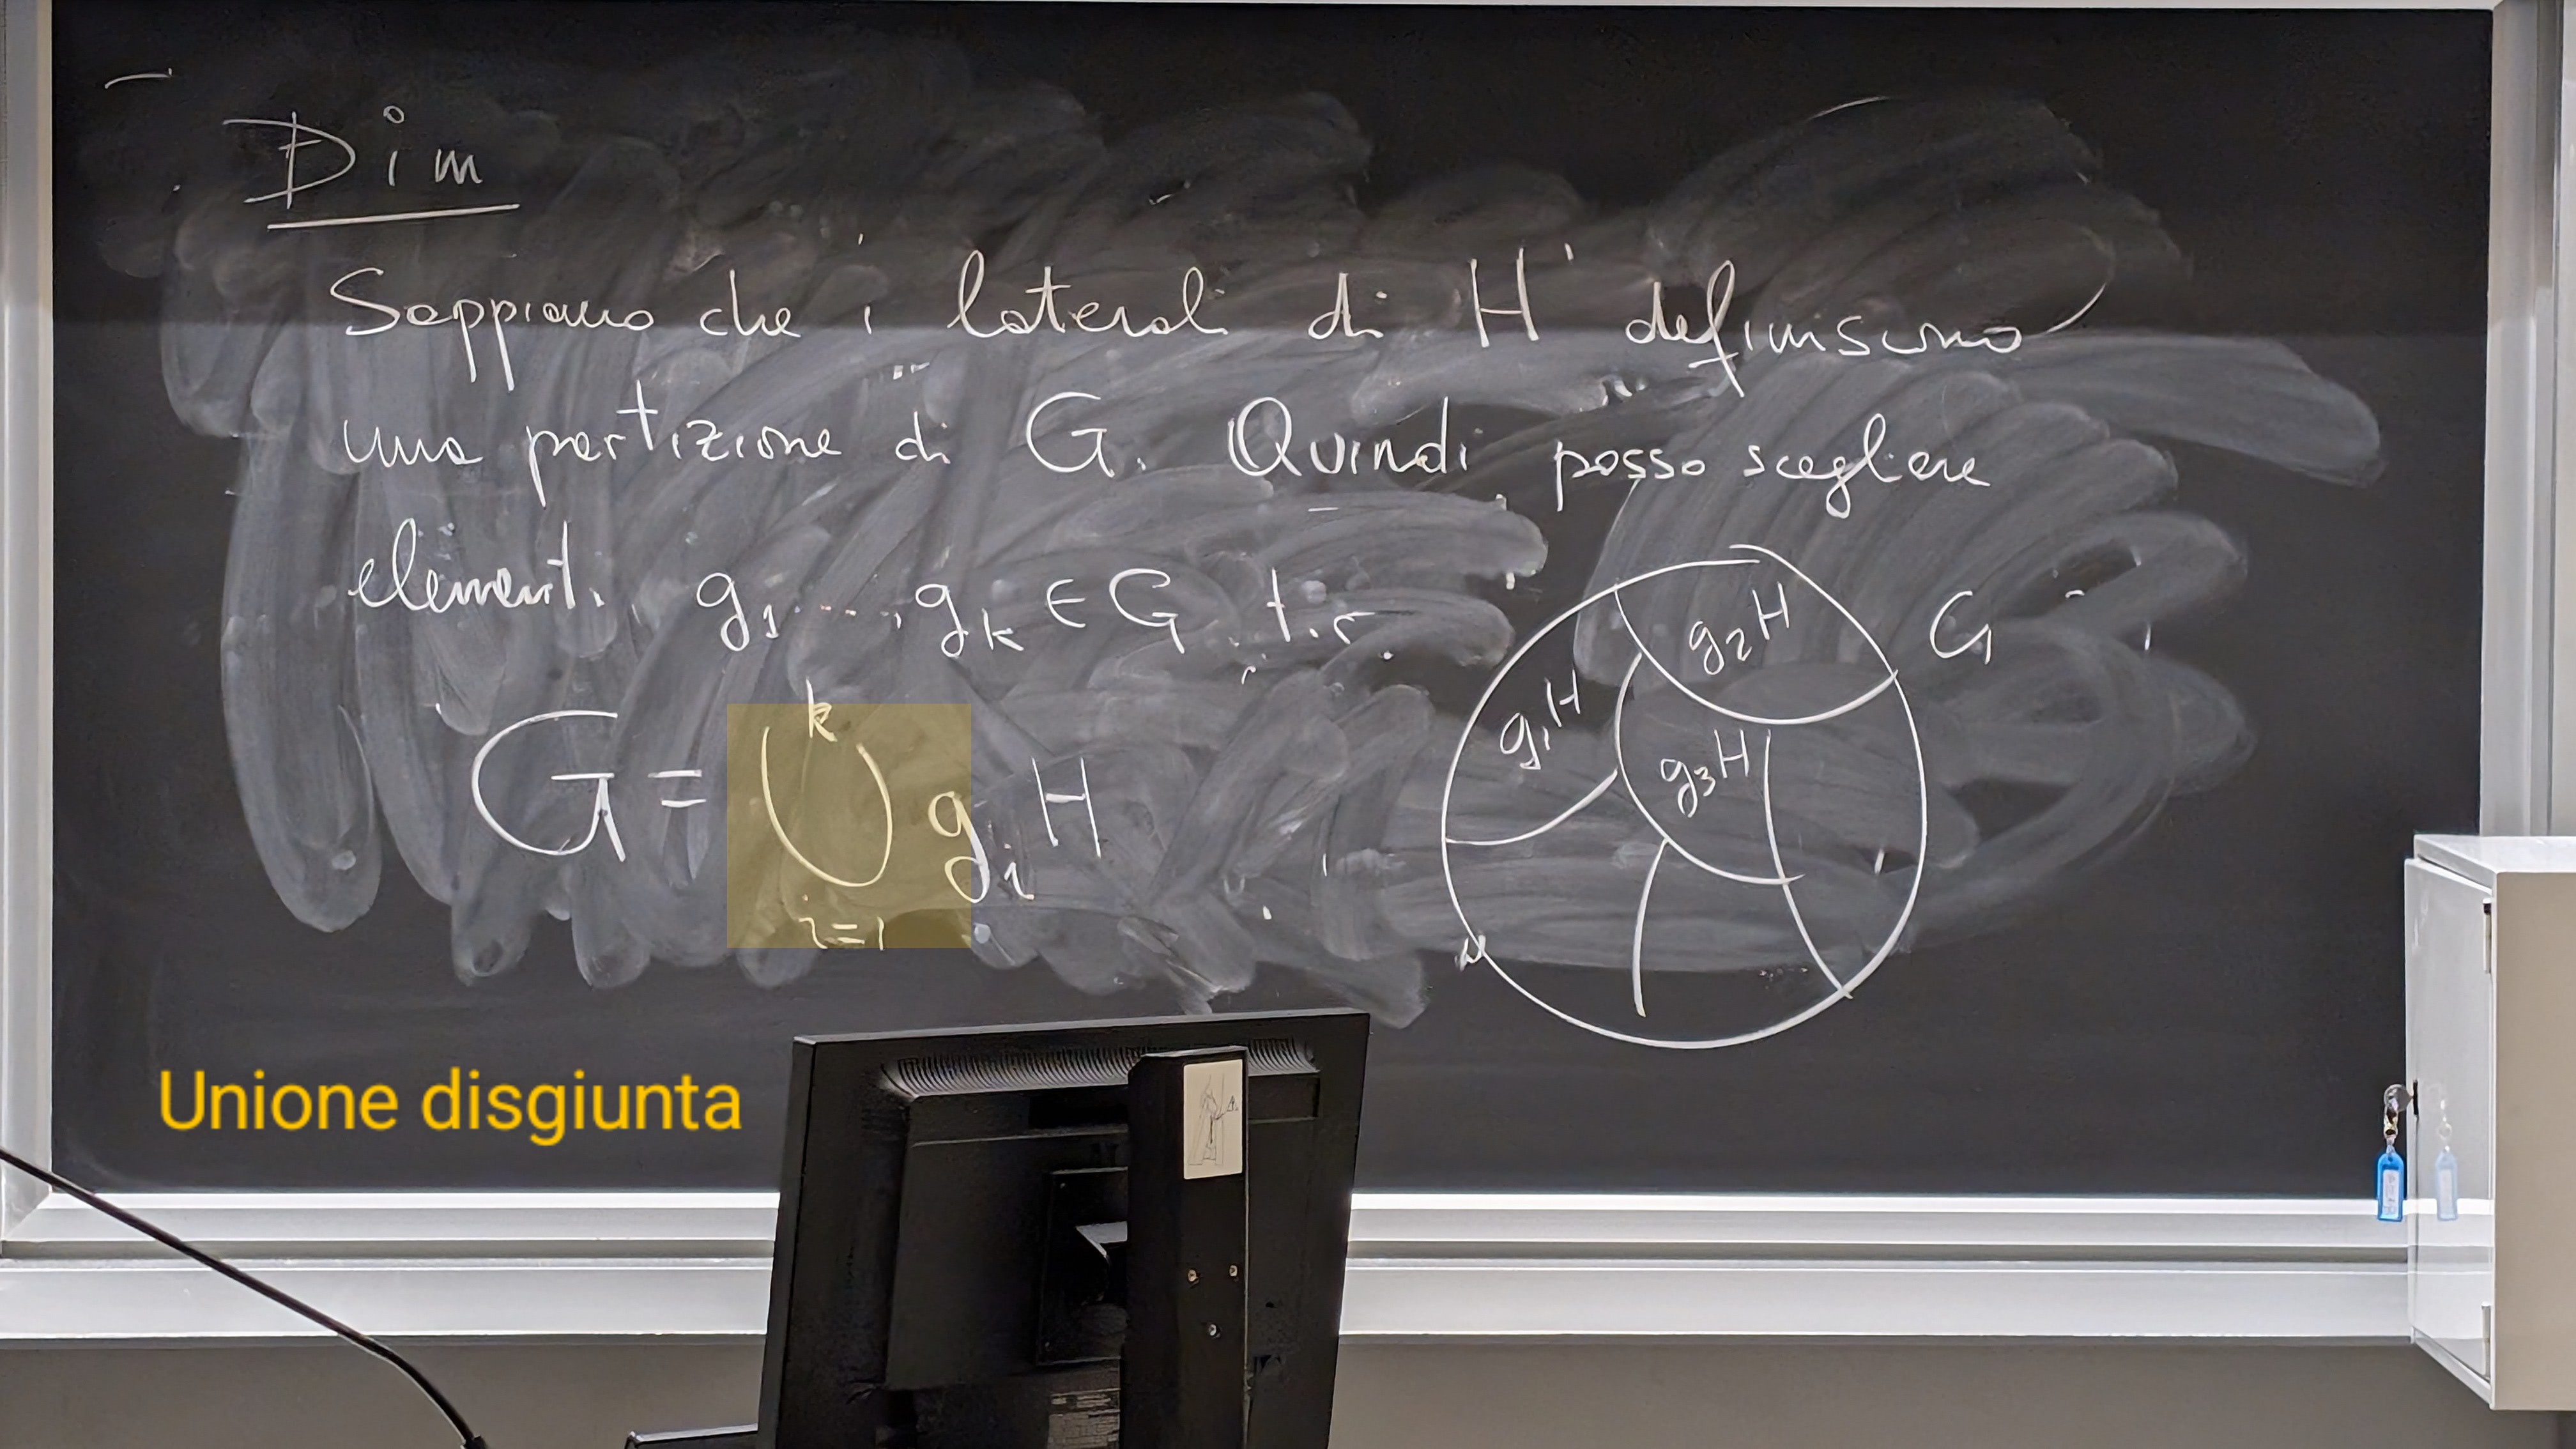 Dim
Sappiamo che i laterali di H definiscono
una partizione di G. Quindi posso scegliere
elementi g₁ ... gₖ ∈ G t.c.
G = ⋃ᵢ₌₁ᵏ gᵢH
g₁H
g₂H
g₃H
G
Unione disgiunta